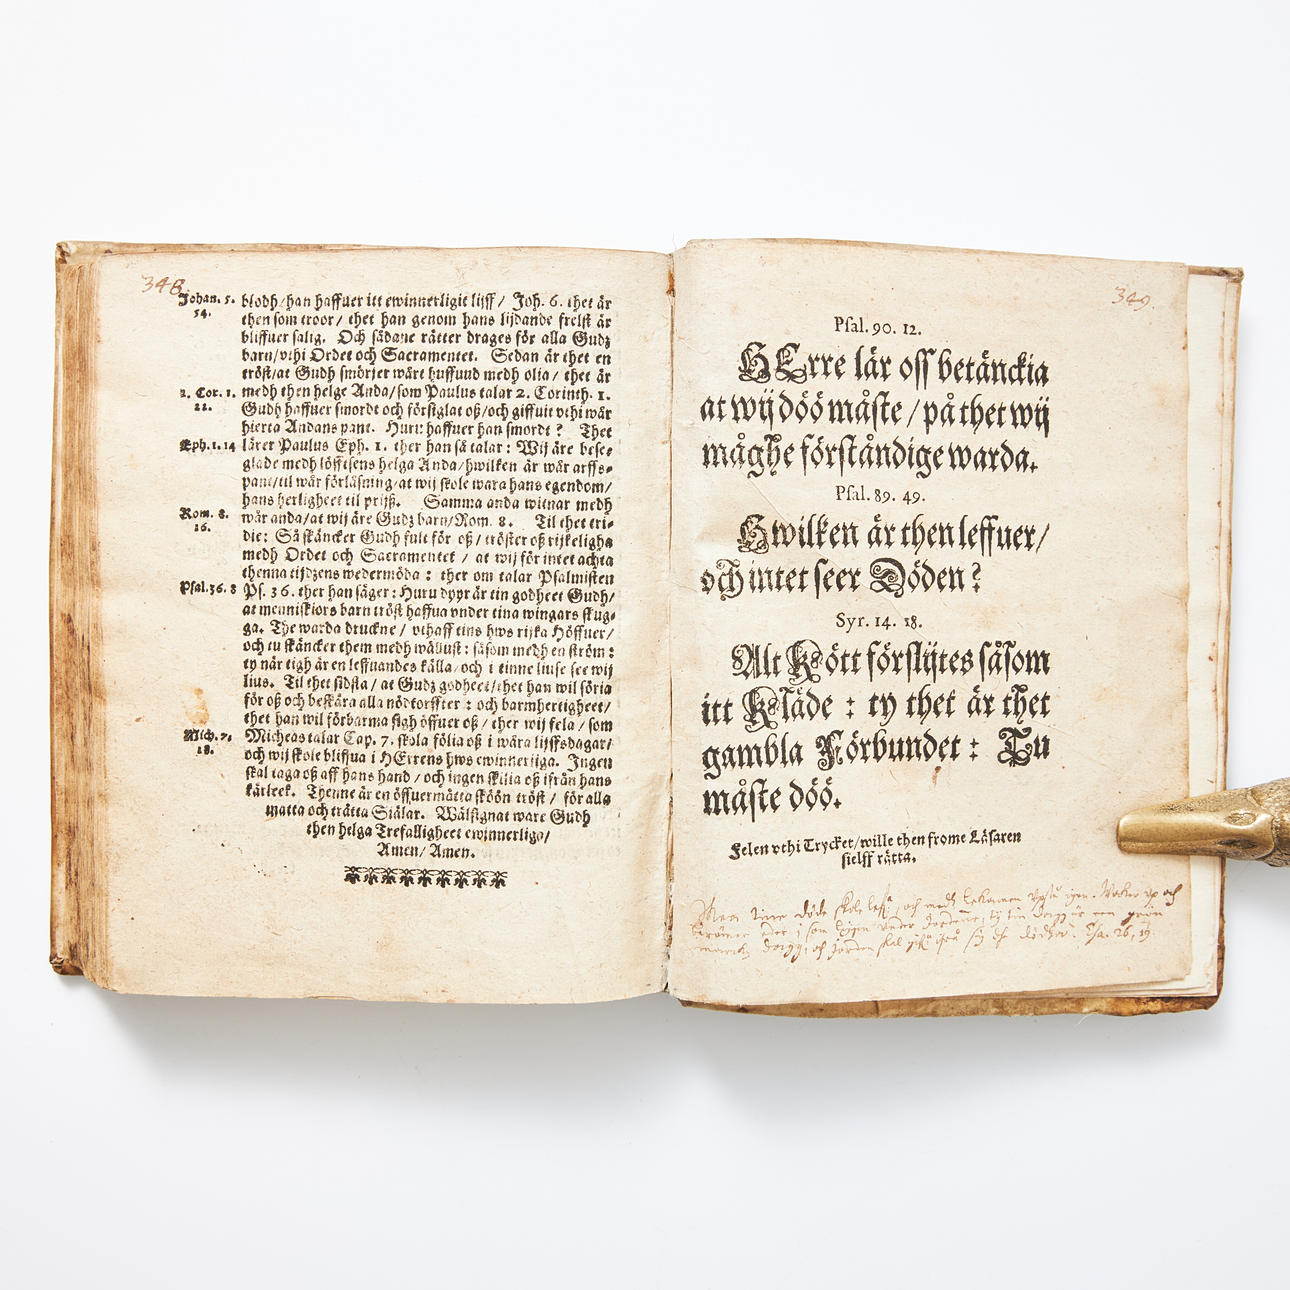 348.
Johan. 5.
54.
blodh/han haffuer itt ewinnerligit lijff / Joh. 6. thet är
then som troor / thet han genom hans lijdande frelst är
bliffuer salig. Och sådane rätter drages för alla Gudz
barn/vthi Ordet och Sacramentet. Sedan är thet en
tröst/at Gudh smörjer wårt huffuud medh olia / thet är
2. Cor. 1.
22.
medh then helge Anda/som Paulus talar 2. Corinth. 1.
Gudh haffuer smordt och förseglat oß/och giffuit vthi wår
hierta Andans pant. Huru haffuer han smordt ? Thet
Eph. 1. 14
lärer Paulus Eph. 1. ther han så talar : Wij äre bese-
glade medh löfftsens helga Anda/hwilken är wår arffs-
pant/til wår förlåsning/at wij skole wara hans egendom/
hans herligheet til prijß. Samma anda witnar medh
Rom. 8.
16.
wår anda/at wij äre Gudz barn/Rom. 8. Til thet tri-
die: Så skäncker Gudh fult för oß / tröster oß rijkeligha
medh Ordet och Sacramentet / at wij för intet achta
thenna tijdzens wedermöda : ther om talar Psalmisten
Psal. 36. 8
Ps. 36. ther han säger : Huru dyyr är tin godheet Gudh/
at menniskiors barn tröst haffua vnder tina wingars skug-
ga. The warda druckne / vthaff tins hws rijka Höffuer/
och tu skäncker them medh wällust : såsom medh en ström :
ty när tigh är en leffuandes källa / och i tinne liuse see wij
lius. Til thet sidsta / at Gudz godheet/thet han wil söria
för oß och beskära alla nödtorffter : och barmhertigheet/
thet han wil förbarma sigh öffuer oß / ther wij fela / som
Mich. 7.
18.
Micheas talar Cap. 7. skola fölia oß i wåra lijffsdagar/
och wij skole bliffua i HErrens hws ewinnerliga. Ingen
skal taga oß aff hans hand / och ingen skilia oß ifrån hans
kärleek. Thenne är en öffuermåtta sköön tröst / för alla
matta och trätta Siälar. Wälsignat ware Gudh
then helga Trefalligheet ewinnerliga/
Amen/ Amen.
349.
Psal. 90. 12.
HErre lär oss betänckia
at wij döö måste / på thet wij
måghe förståndige warda.
Psal. 89. 49.
Hwilken är then leffuer/
och intet seer Döden ?
Syr. 14. 18.
Alt Kött förslijtes såsom
itt Kläde : ty thet är thet
gambla Förbundet : Tu
måste döö.
Felen vthi Trycket/wille then frome Läsaren
sielff rätta.
Men tine döde skole leffa, och medh lekamen vpstå igen. Waker vp och
eder i som liggen vnder Jordenne, ty tin dogg är een grön
dogg, och Jorden skal ifrå sig de dödha. Esa. 26, 19.